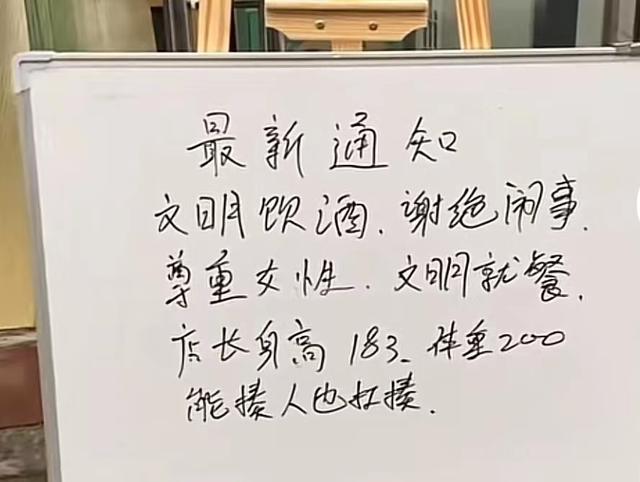 最新通知
文明饮酒、谢绝闹事.
尊重女性、文明就餐.
店长身高183、体重200
能揍人也扛揍.